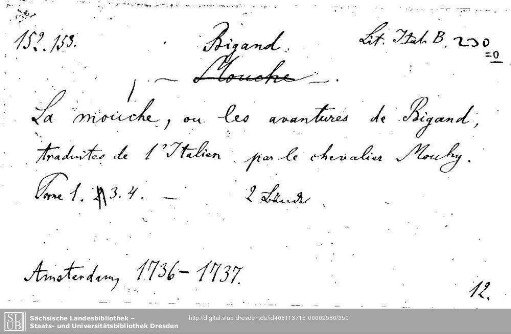 152.153.
Bigand.
Lit. Ital. B. 230
=0
Mouche
La mouche, ou les avantures de Bigand,
traduites de l'Italien par le chevalier Mouhy.
Tome 1. 3. 4. — 2 Bände
Amsterdam, 1736–1737.
12.
SLUB
Sächsische Landesbibliothek –
Staats- und Universitätsbibliothek Dresden